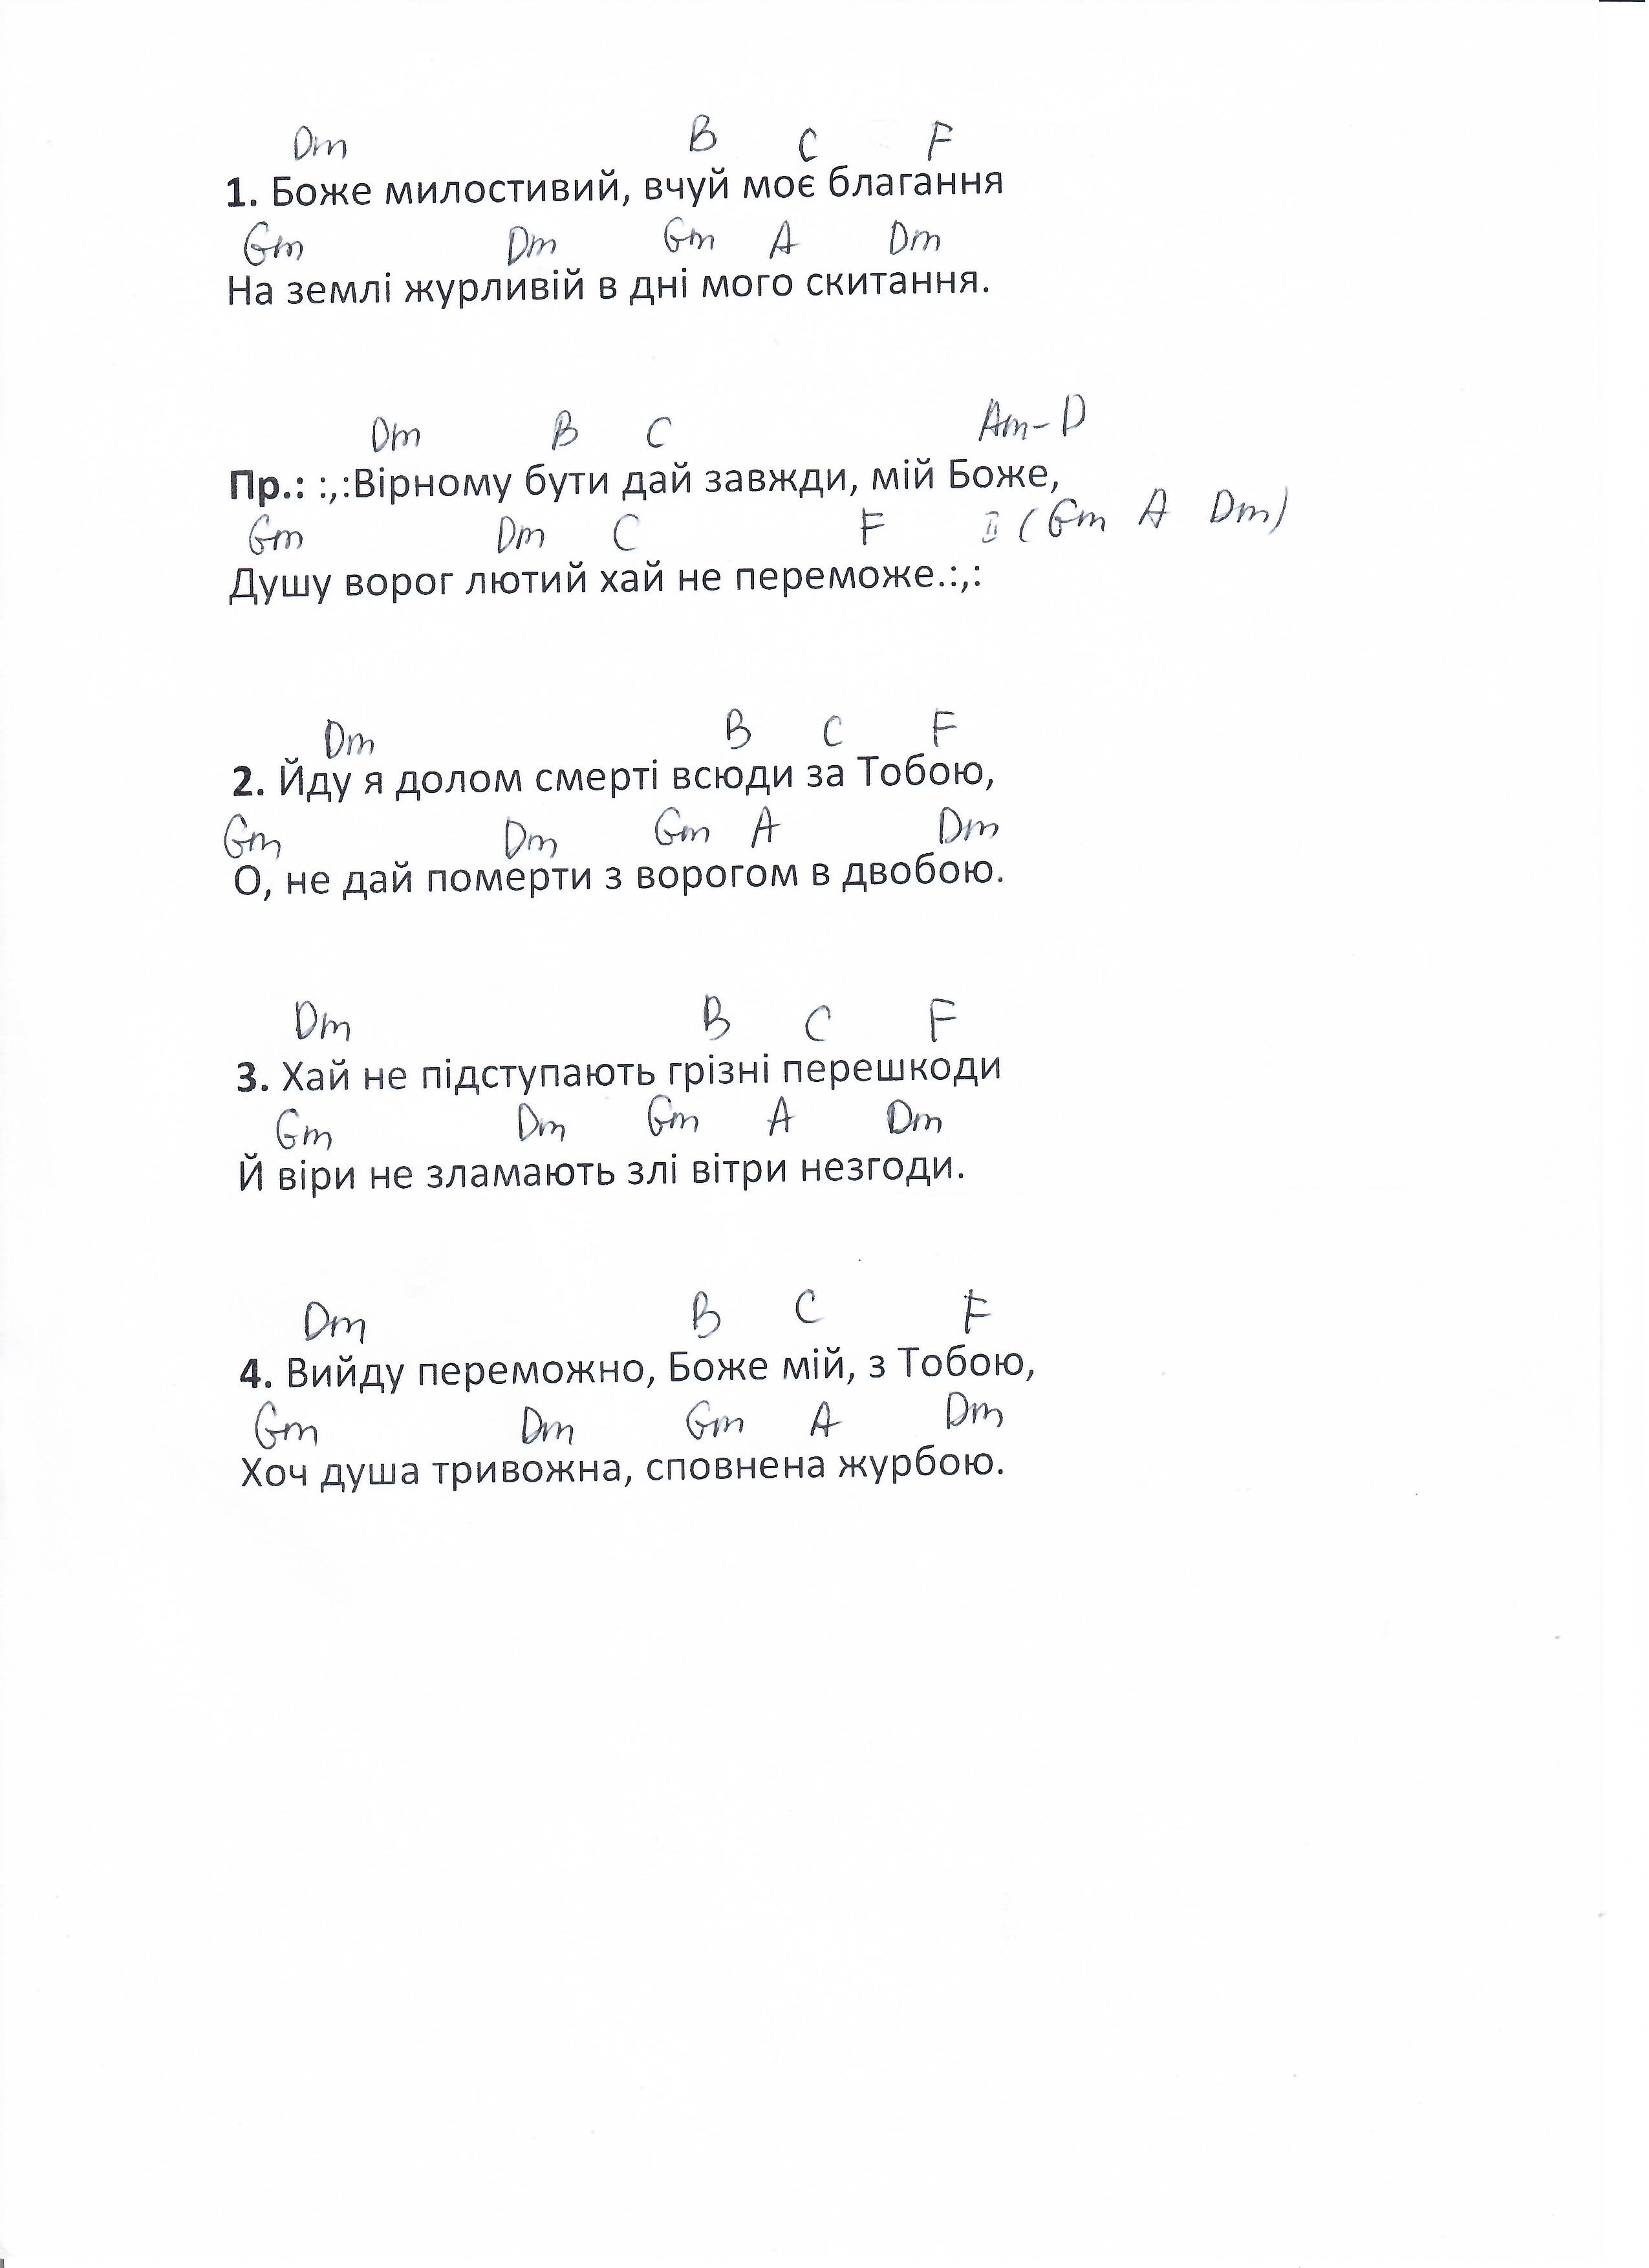 Dm B C F
1. Боже милостивий, вчуй моє благання
Gm Dm Gm A Dm
На землі журливій в дні мого скитання.
Dm B C Am-D
Пр.: :,:Вірному бути дай завжди, мій Боже,
Gm Dm C F II (Gm A Dm)
Душу ворог лютий хай не переможе.:,:
Dm B C F
2. Йду я долом смерті всюди за Тобою,
Gm Dm Gm A Dm
О, не дай померти з ворогом в двобою.
Dm B C F
3. Хай не підступають грізні перешкоди
Gm Dm Gm A Dm
Й віри не зламають злі вітри незгоди.
Dm B C F
4. Вийду переможно, Боже мій, з Тобою,
Gm Dm Gm A Dm
Хоч душа тривожна, сповнена журбою.